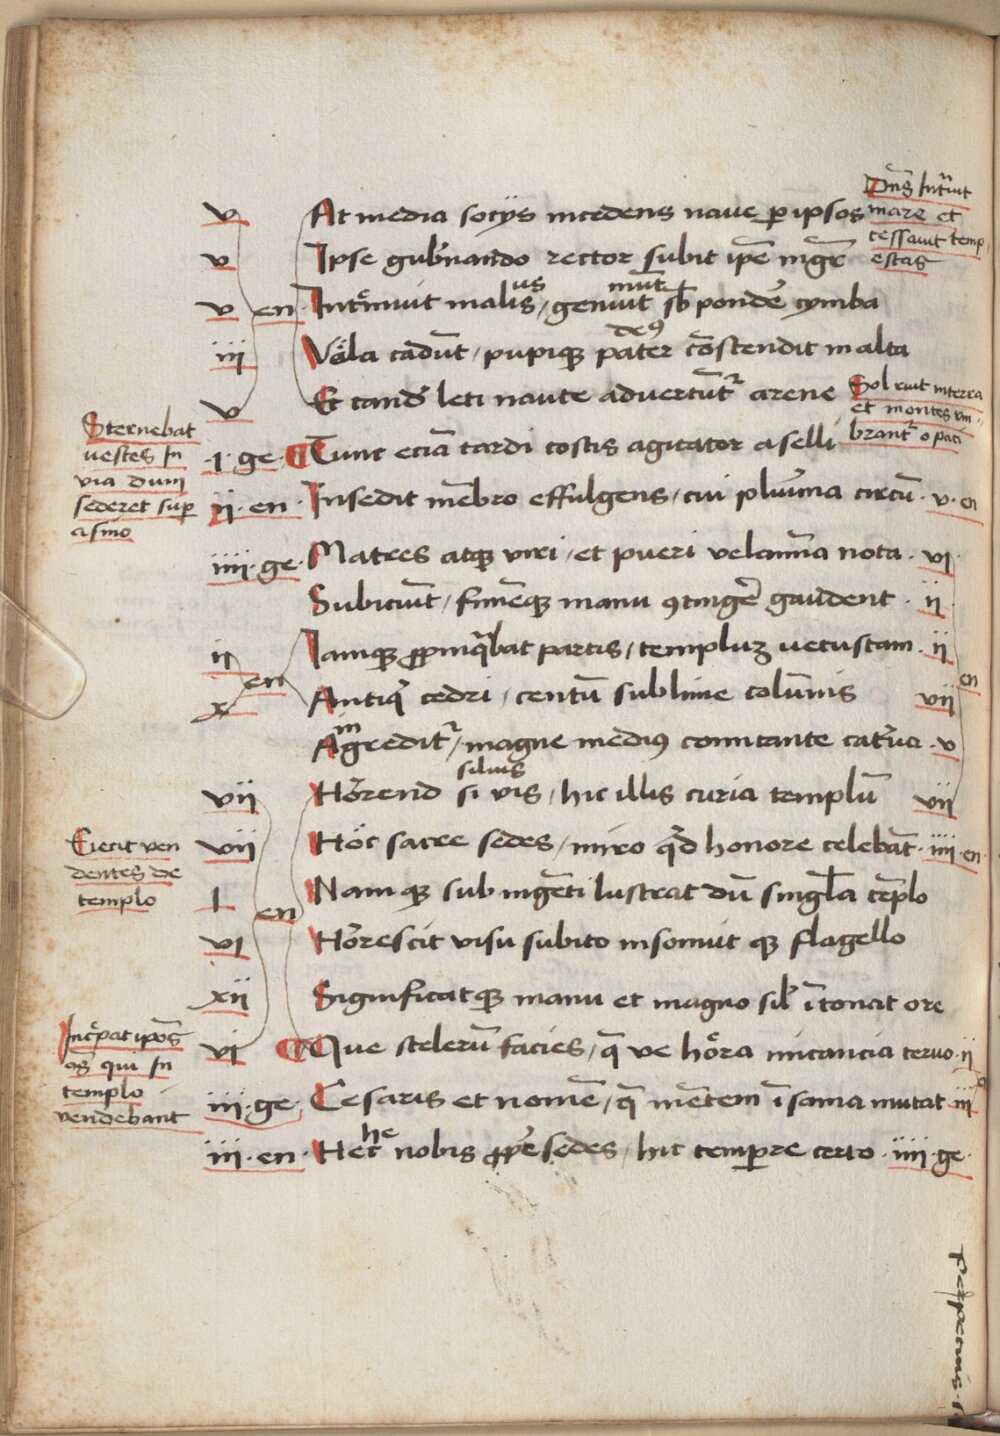 Dn̄s Intᷓuit
mare et
cessauit temp
estas
v At media socijs incedens naue ꝑ ipsos
v Ipse gub̉nando rector subit ip̄e mgr̄
us
mūt
v en Intᷓmuit malis / gemuit sb̄ pond̉e cymba
deꝰ
iij Völa cadūt / pupiqꝫ pater cōscendit in alta
v Et tand̉ leti naute advertūt᷑ arene
Sol ruit interea
et montes vm
brant᷑ opaci
Sternebat
uestes In
via dum
sederet sup
asino
·I· ge· Tunc eciā tardi costis agitator aselli
ij·en· Insedit mēbro effulgens / cui plurīma circū· v· en
iiij·ge· Matres atqꝫ viri / et pueri velamīa nota· vi·
Subiciūt / funēqꝫ manu ꝯtinger̄ gaudent· ij
ij Iamqꝫ ꝓpinq̄bat partis / templuꝫ uetustam· ij
en
en
x Antiq̉ cedri / centū sublime colūnis vij
in
Agredit᷑ / magne mediꝯ comitante cat̉ua· v
siluis
vij Hor̉end si vis / hic illis curia templū vij
Eiecit ven
dentes de
templo
vij Höc sacre sedes / miro q̄d honore celebāt· iiij·en·
I Nam qꝫ sub ingēti lustrat dū singl̄a tēplo
en
vi Hor̉escit visu subito insonuit qꝫ flagello
xij Significatqꝫ manu et magno sil̉ ītonat ore
Incᷓpat ipōs
os qui In
templo
vendebant
vi Que scelerū facies / q̄ ve höra mitancia teruo· ij
iij·ge· Cesaris et nomē / q̄ mētem īsania mutat iij
he
iij·en· Hec nobis ꝓp̉e sedes / hic tempre certo· iiij·ge·
perpetuis